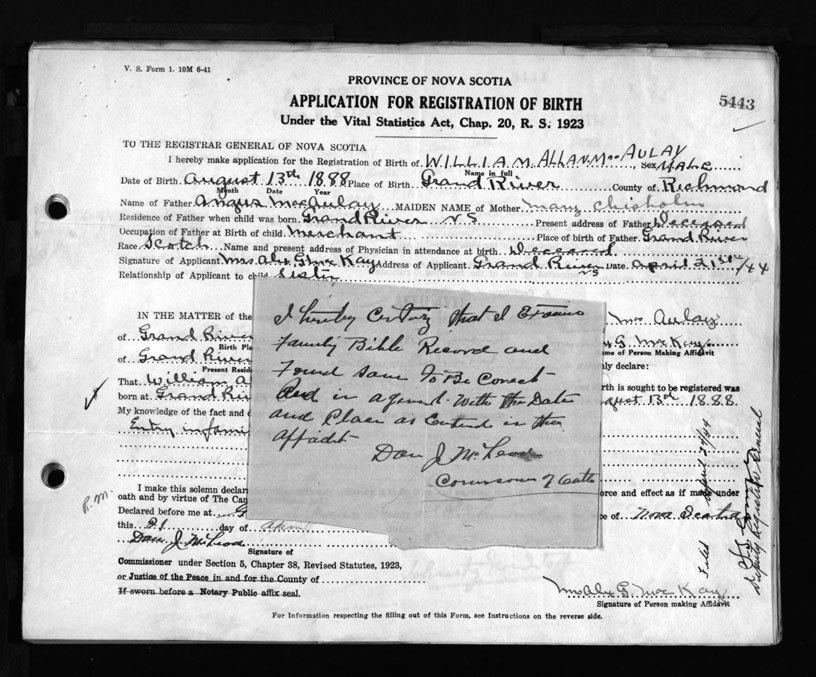 V. S. Form 1. 10M 6-41
PROVINCE OF NOVA SCOTIA
5443
APPLICATION FOR REGISTRATION OF BIRTH
Under the Vital Statistics Act, Chap. 20, R. S. 1923
TO THE REGISTRAR GENERAL OF NOVA SCOTIA
I hereby make application for the Registration of Birth of WILLIAM ALLAN MacAULAY Sex MALE
Name in full
Date of Birth August 13th 1888 Place of Birth Grand River County of Richmond
Month Date Year
Name of Father Angus MacAulay MAIDEN NAME of Mother Mary Chisholm
Residence of Father when child was born Grand River NS Present address of Father Deceased
Occupation of Father at Birth of child Merchant Place of birth of Father Grand River
Race Scotch Name and present address of Physician in attendance at birth Deceased
Signature of Applicant Mrs Alex G McKay Address of Applicant Grand River NS Date April 21st/44
Relationship of Applicant to child Sister
IN THE MATTER of the Mac Aulay
of Grand River G. McKay
Birth Pla me of Person Making Affidavit
of Grand River nly declare:
Present Resid
That William A rth is sought to be registered was
born at Grand Riv gust 13th 1888
My knowledge of the fact and
Entry in fami
I hereby Certify that I Examine
Family Bible Record and
Found same To Be Corect
And in agrment With the Date
and Place as Contend in the
Affadet
Dan J. McLeod
Comissoner of Oaths
R.M.
I make this solemn declar orce and effect as if made under
oath and by virtue of The Can
Declared before me at G e of Nova Scotia
this 21 day of April
Dan J. McLeod
Signature of
Commissioner under Section 5, Chapter 38, Revised Statutes, 1923,
or Justice of the Peace in and for the County of
If sworn before a Notary Public affix seal.
Mrs Alex G. McKay
Signature of Person making Affidavit
For Information respecting the filling out of this Form, see Instructions on the reverse side.
Filed April 24/44
Deputy Registrar General